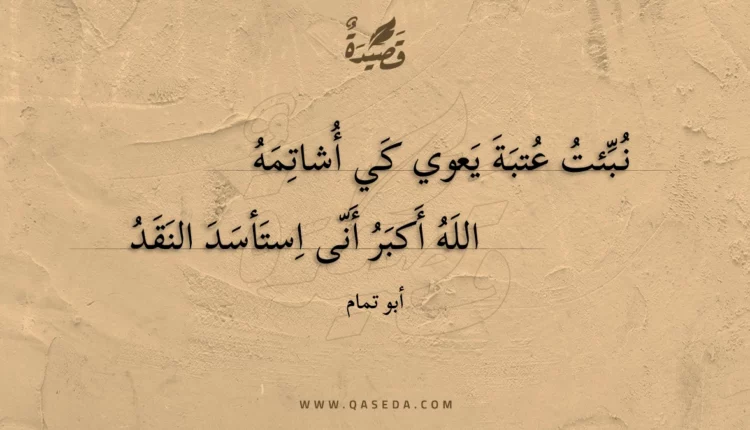 قَصِيدَةٌ
نُبِّئتُ عُتبَةَ يَعوي كَي أُشاتِمَهُ
اللَهُ أَكبَرُ أَنّى اِستَأسَدَ النَقَدُ
أبو تمام
WWW.QASEDA.COM